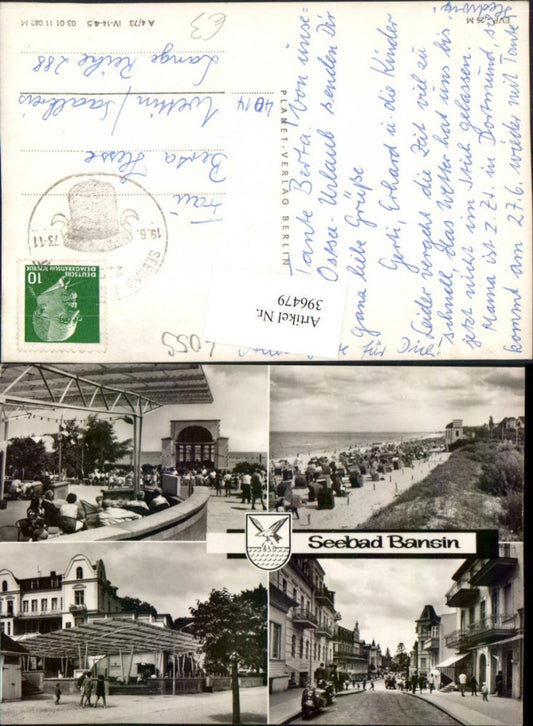 EVP -,26 M
A 4/73 IV-14-45 03 01 11 082 M
PLANET-VERLAG BERLIN
Tante Berta! Von unse-
Ostsee-Urlaub senden Dir
Ganz liebe Grüße
Gerti, Erhard u. die Kinder
Leider vergeht die Zeit viel zu
schnell. Das Wetter hat uns bis
jetzt nicht im Stich gelassen.
Mama ist z. Zt. in Dortmund, sie
kommt am 27.6. wieder mit Tante
Hedwig!
für Dich
DEUTSCHE
DEMOKRATISCHE REPUBLIK
10
19.6.73-11
Frau
Berta Hesse
4014 Wettin/Saalkreis
Lange Reihe 288
€3
L055
Artikel Nr.
396479
Seebad Bansin